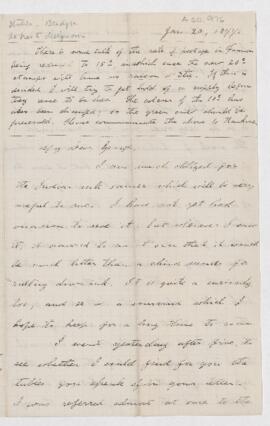 Jan. 20, 187
There is some talk of the rate of postage in France
being reduced to 15 c. in which case the new 20 c.
stamps will have no raison d'être. If this is
decided I will try to get hold of a supply before
they cease to be used. The colors of the 10 c. has
also been changed, so the green will should be
preserved. Please communicate the above to
My dear
I am much obliged for
the Indian ink saucer which will be very
useful to me. I have not yet had
occasion to use it, but whenever I saw
it, it occurred to me at once that it would
be much better than a china saucer for
rubbing down ink. It is quite a curiosity
too, and is a souvenir which I
hope to keep for a long time to come.
I went yesterday after five, to
see whether I could find for you the
tubes you speak of in your letter.
I was referred almost at once to the